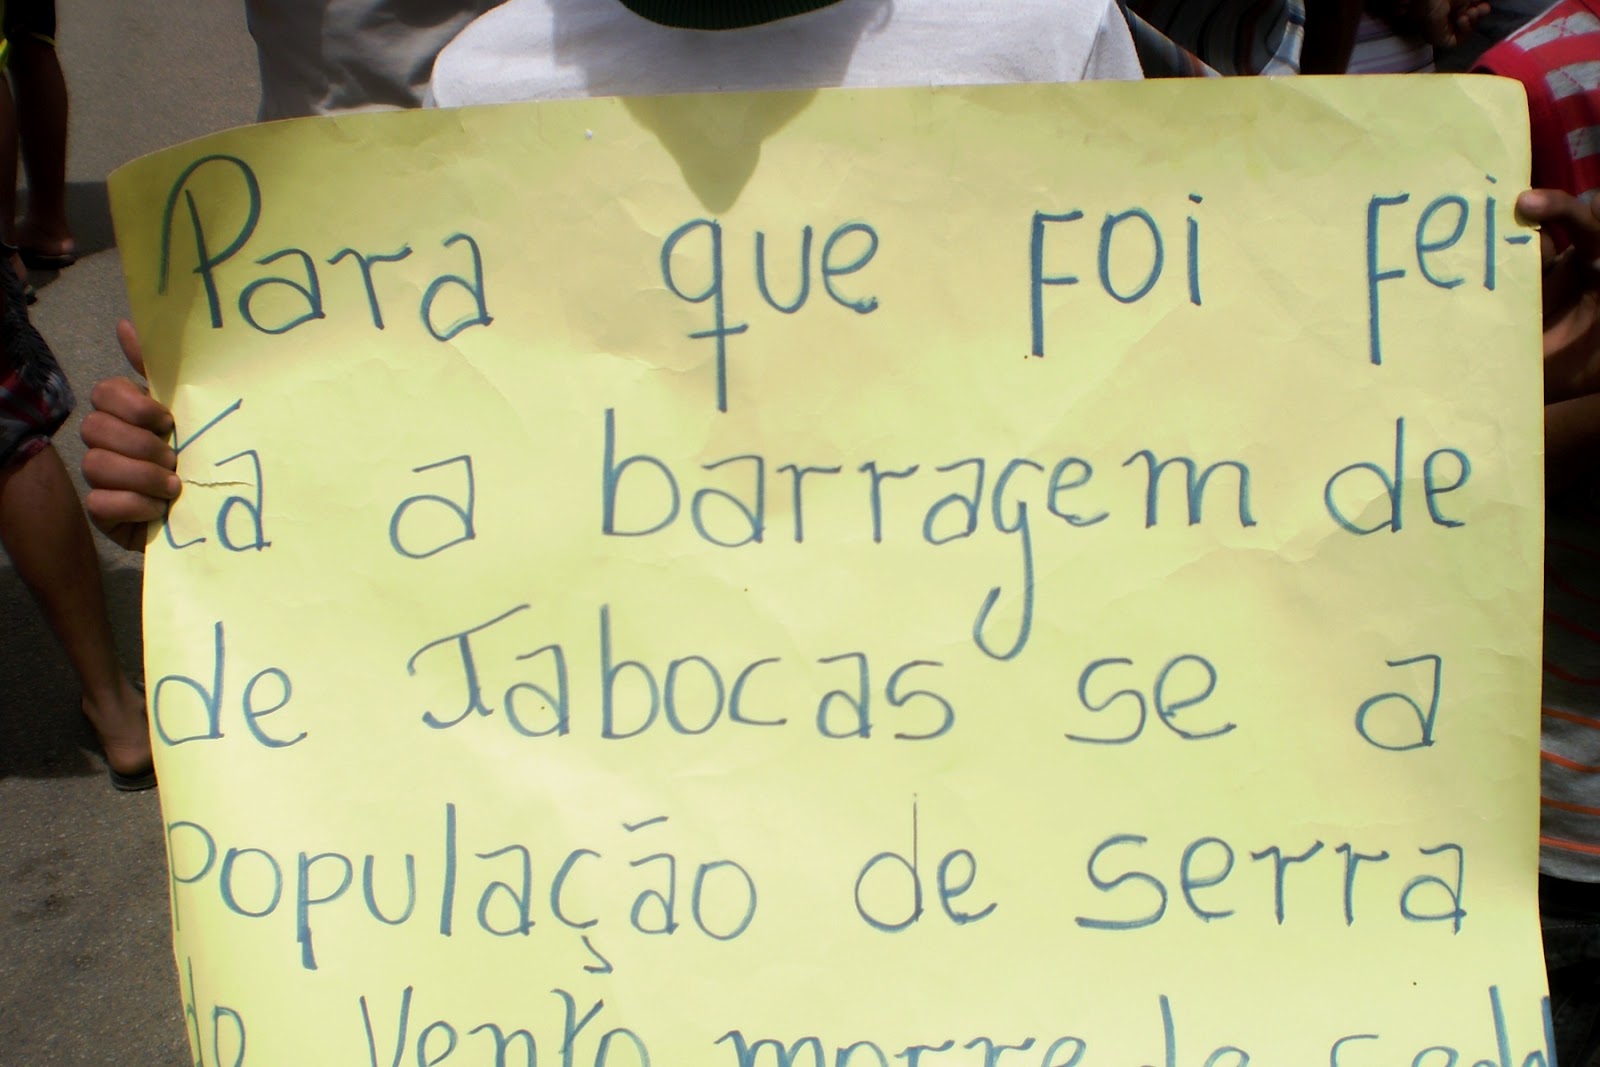 Para que foi fei-
ta a barragem de
de Jabocas se a
população de serra
do Vento morre de sede